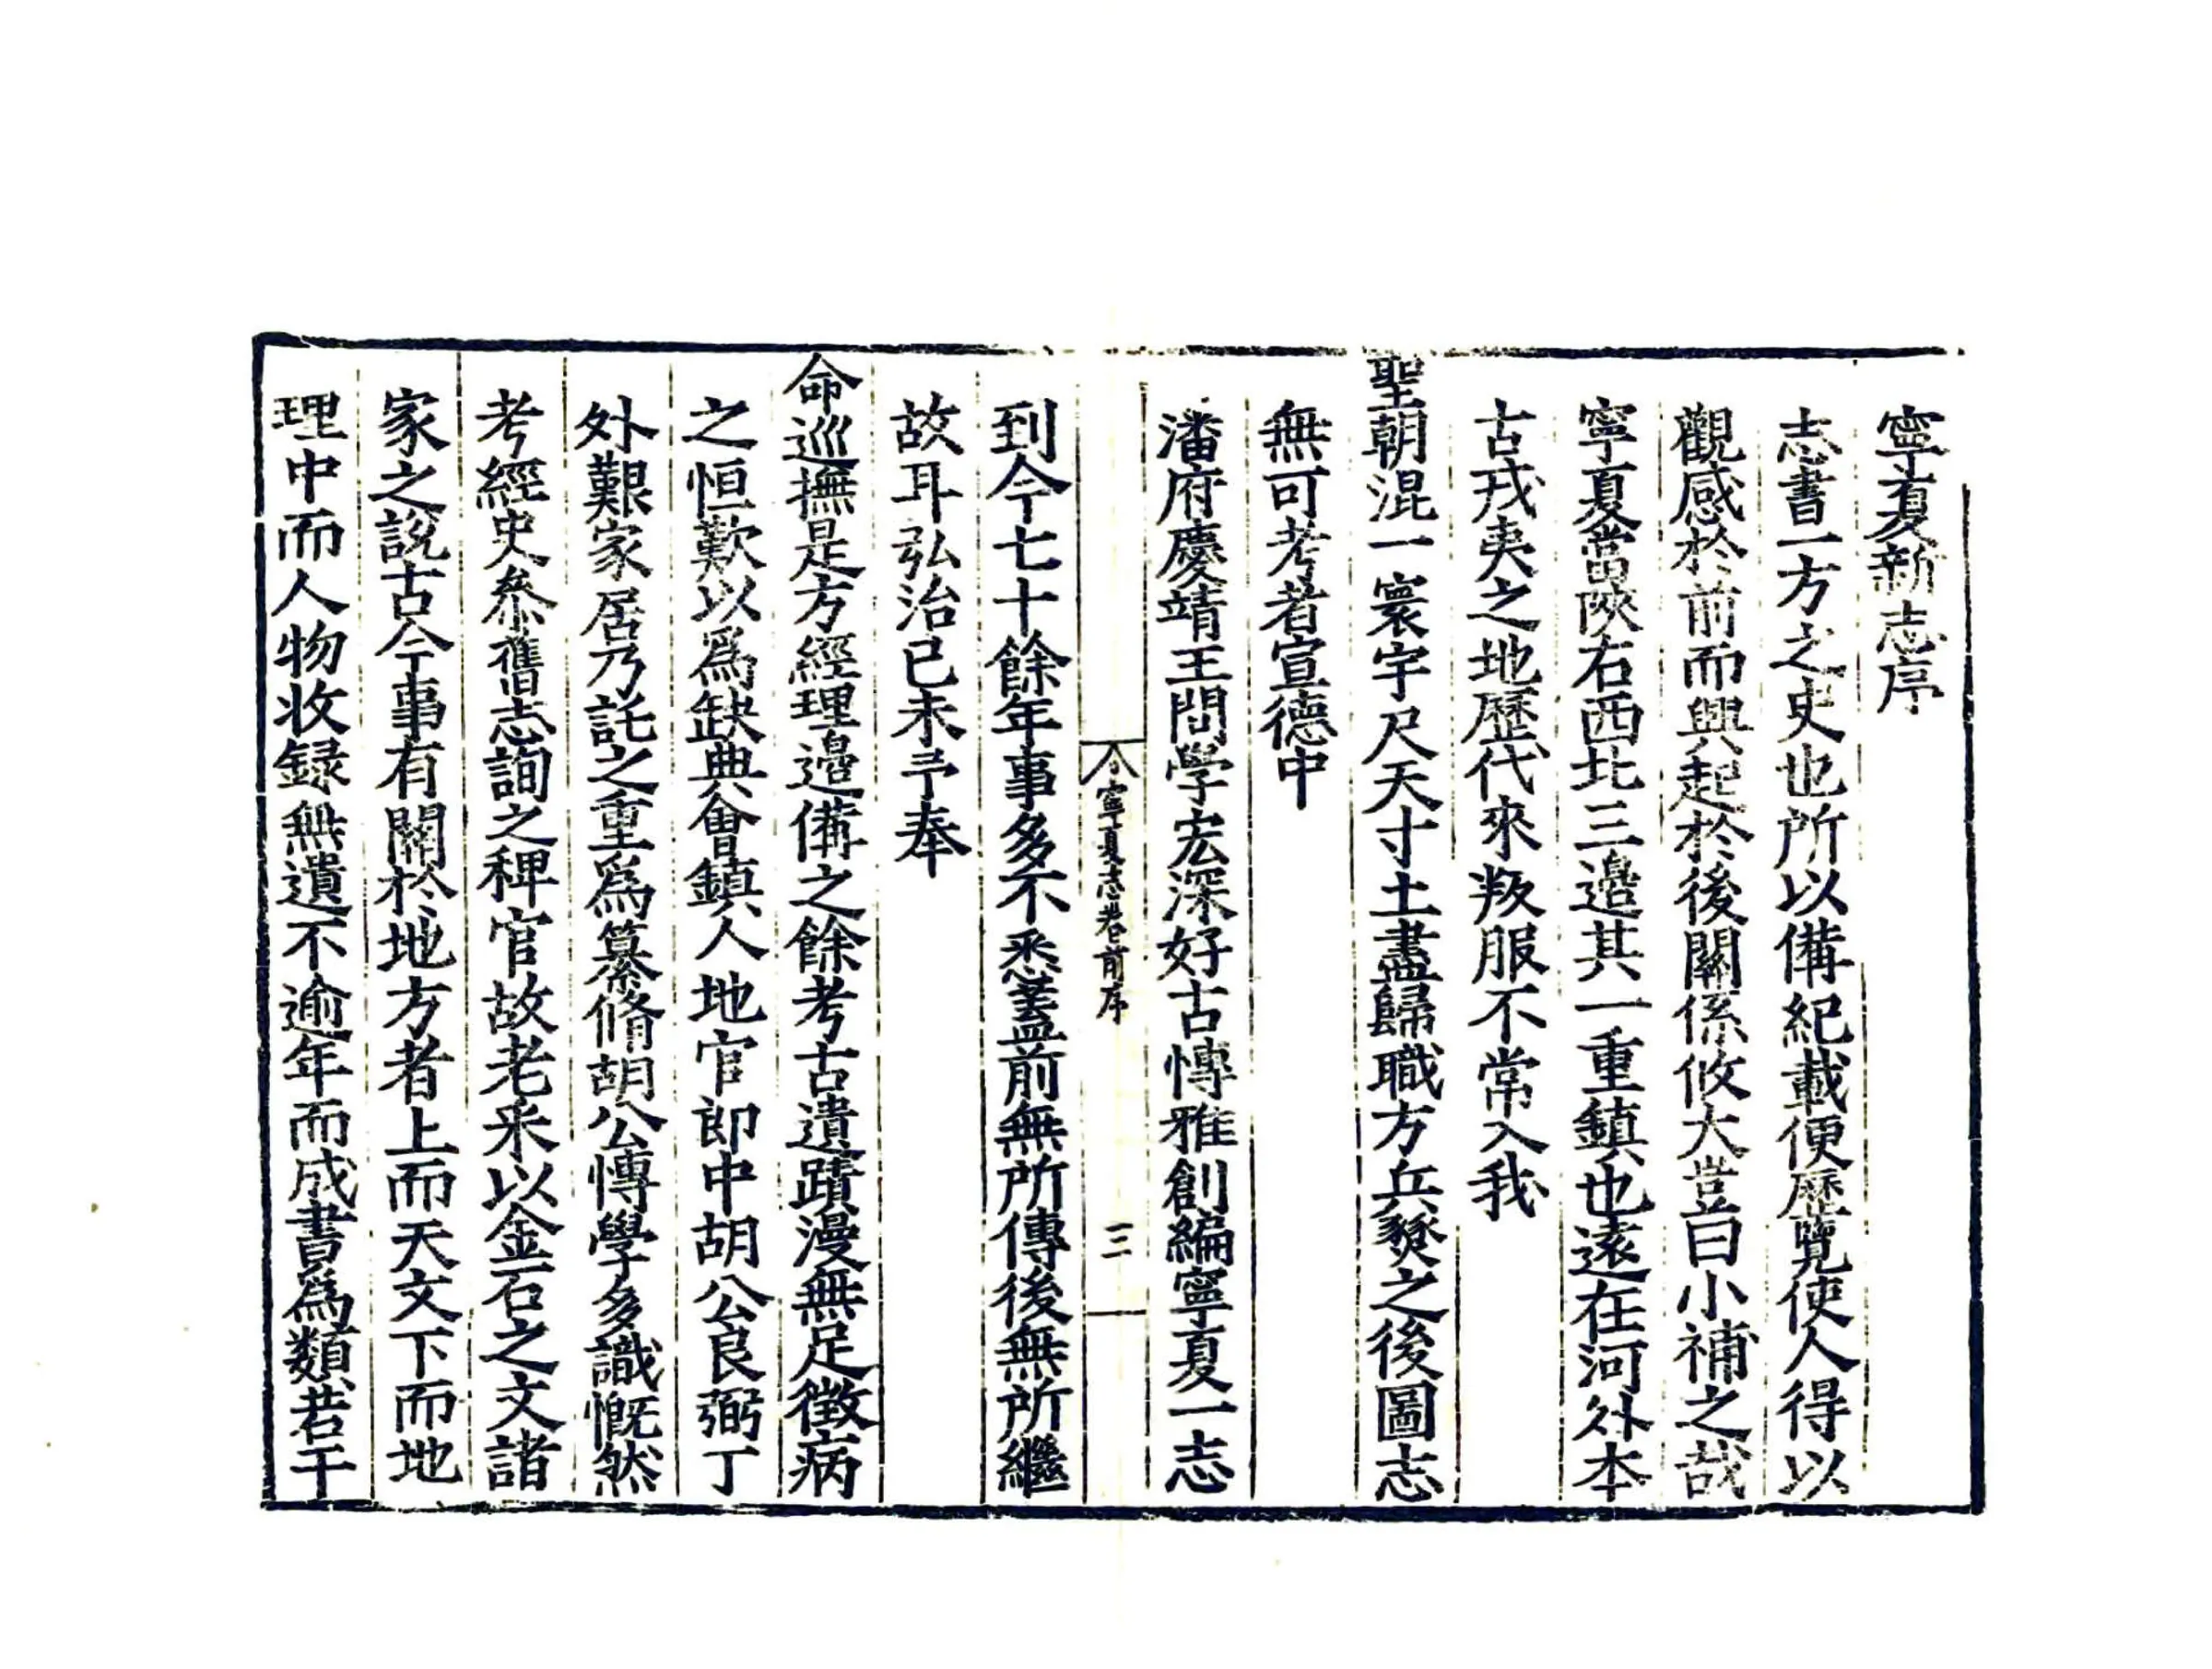 寧夏新志序
志書一方之史也所以備紀載便歷覽使人得以
觀感於前而興起於後關係攸大豈曰小補之哉
寧夏當陝右西北三邉其一重鎮也遠在河外本
古戎夷之地歷代來叛服不常入我
聖朝混一寰宇尺天寸土盡歸職方兵燹之後圖志
無可考者宣德中
潘府慶靖王問學宏深好古博雅創編寧夏一志
寧夏志卷前序
三
到今七十餘年事多不悉蓋前無所傳後無所繼
故耳弘治己未予奉
命巡撫是方經理邉備之餘考古遺蹟漫無足徵病
之恒歎以為缺典會鎮人地官郎中胡公良弼丁
外艱家居乃託之重為纂脩胡公博學多識慨然
考經史叅舊志詢之稗官故老采以金石之文諸
家之說古今事有關於地方者上而天文下而地
理中而人物收録無遺不逾年而成書為類若干